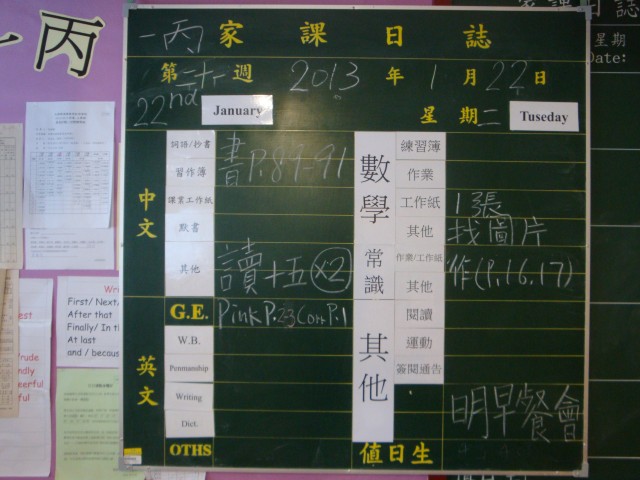 一丙
一丙 家課日誌
第二十一週 2013年1月22日
22nd January 星期二 Tuseday
中文
詞語/抄書
習作簿 書P.89-91
課業工作紙
默書
其他 讀十五(x2)
英文
G.E. Pink P.23 Corr P.1
W.B.
Penmanship
Writing
Dict.
OTHS
數學
練習簿
作業
工作紙 1張
其他 找圖片
常識
作業/工作紙 作(P.16.17)
其他
其他
閱讀
運動
簽閱通告
明早餐會
值日生
家課日誌
星期
Date:
First/ Next/
After that
Finally/ In th
At last
and / becaus